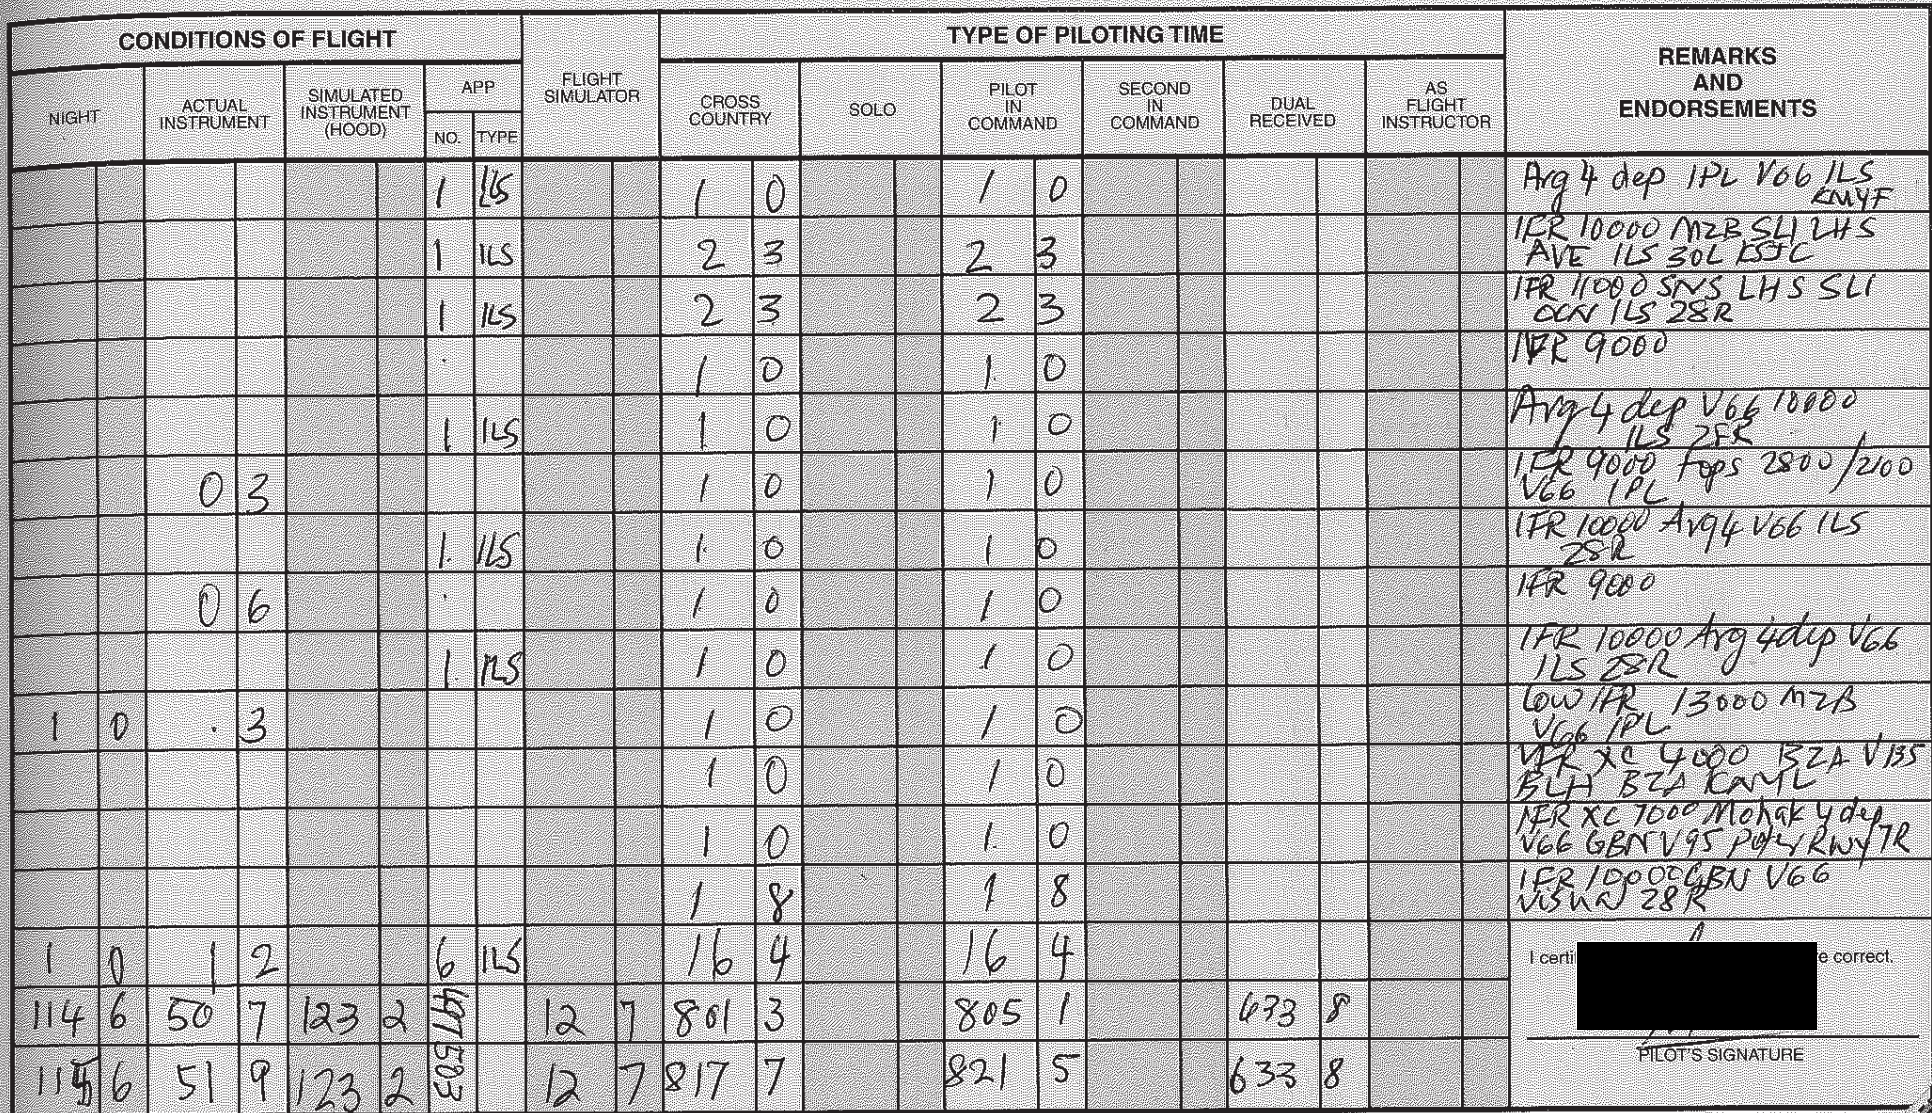 CONDITIONS OF FLIGHT FLIGHT SIMULATOR TYPE OF PILOTING TIME REMARKS AND ENDORSEMENTS
NIGHT ACTUAL INSTRUMENT SIMULATED INSTRUMENT (HOOD) APP NO. TYPE CROSS COUNTRY SOLO PILOT IN COMMAND SECOND IN COMMAND DUAL RECEIVED AS FLIGHT INSTRUCTOR
1 ILS 1 0 1 0 Arg 4 dep IPL V66 ILS
KMYF
1 ILS 2 3 2 3 IFR 10000 MZB SLI LHS
AVE ILS 30L KSJC
1 ILS 2 3 2 3 IFR 11000 SNS LHS SLI
OCN ILS 28R
1 0 1 0 9000
1 ILS 1 0 1 0 Arg 4 dep V66 10000
ILS 28R
0 3 1 0 1 0 IFR 9000 Tops 2800/2100
V66 IPL
1 ILS 1 0 1 0 IFR 10000 Arg 4 V66 ILS
28R
0 6 1 0 1 0 IFR 9000
1 ILS 1 0 1 0 IFR 10000 Arg 4 dep V66
ILS 28R
1 0 .3 1 0 1 0 Low IFR 13000 MZB
V66 IPL
1 0 1 0 VFR XC 4000 BZA V135
BLH BZA KNYL
1 0 1 0 IFR XC 7000 Mohak 4 dep
V66 GBN V95 Rwy 7R
1 8 1 8 IFR 10000 GBN V66
Visual 28R
1 0 1 2 6 ILS 16 4 16 4 I certi e correct.
114 6 50 7 123 2 497 12 7 801 3 805 1 633 8
115 6 51 9 123 2 503 12 7 817 7 821 5 633 8
PILOT'S SIGNATURE